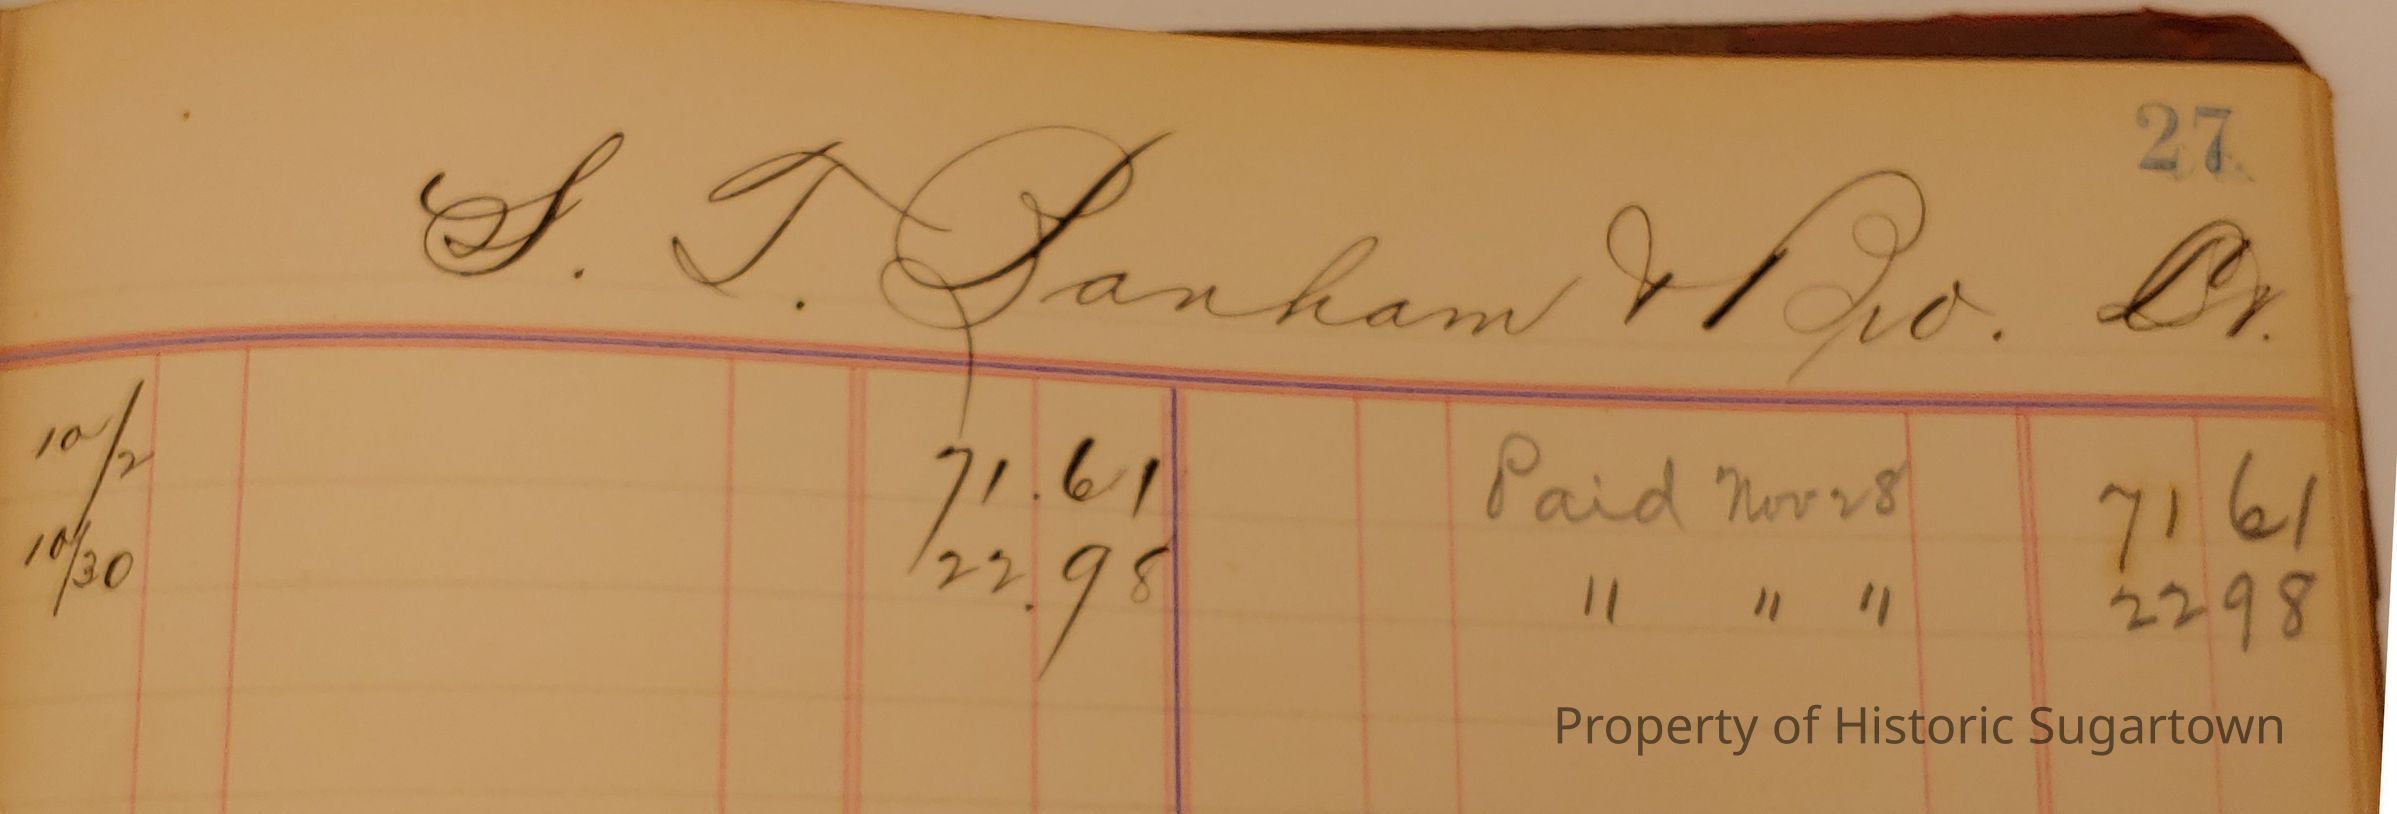 27
S. T. Danham & Bro. Dr.
10/2 71.61 Paid Nov 28 71 61
10/30 22.98 " " " 22 98
Property of Historic Sugartown